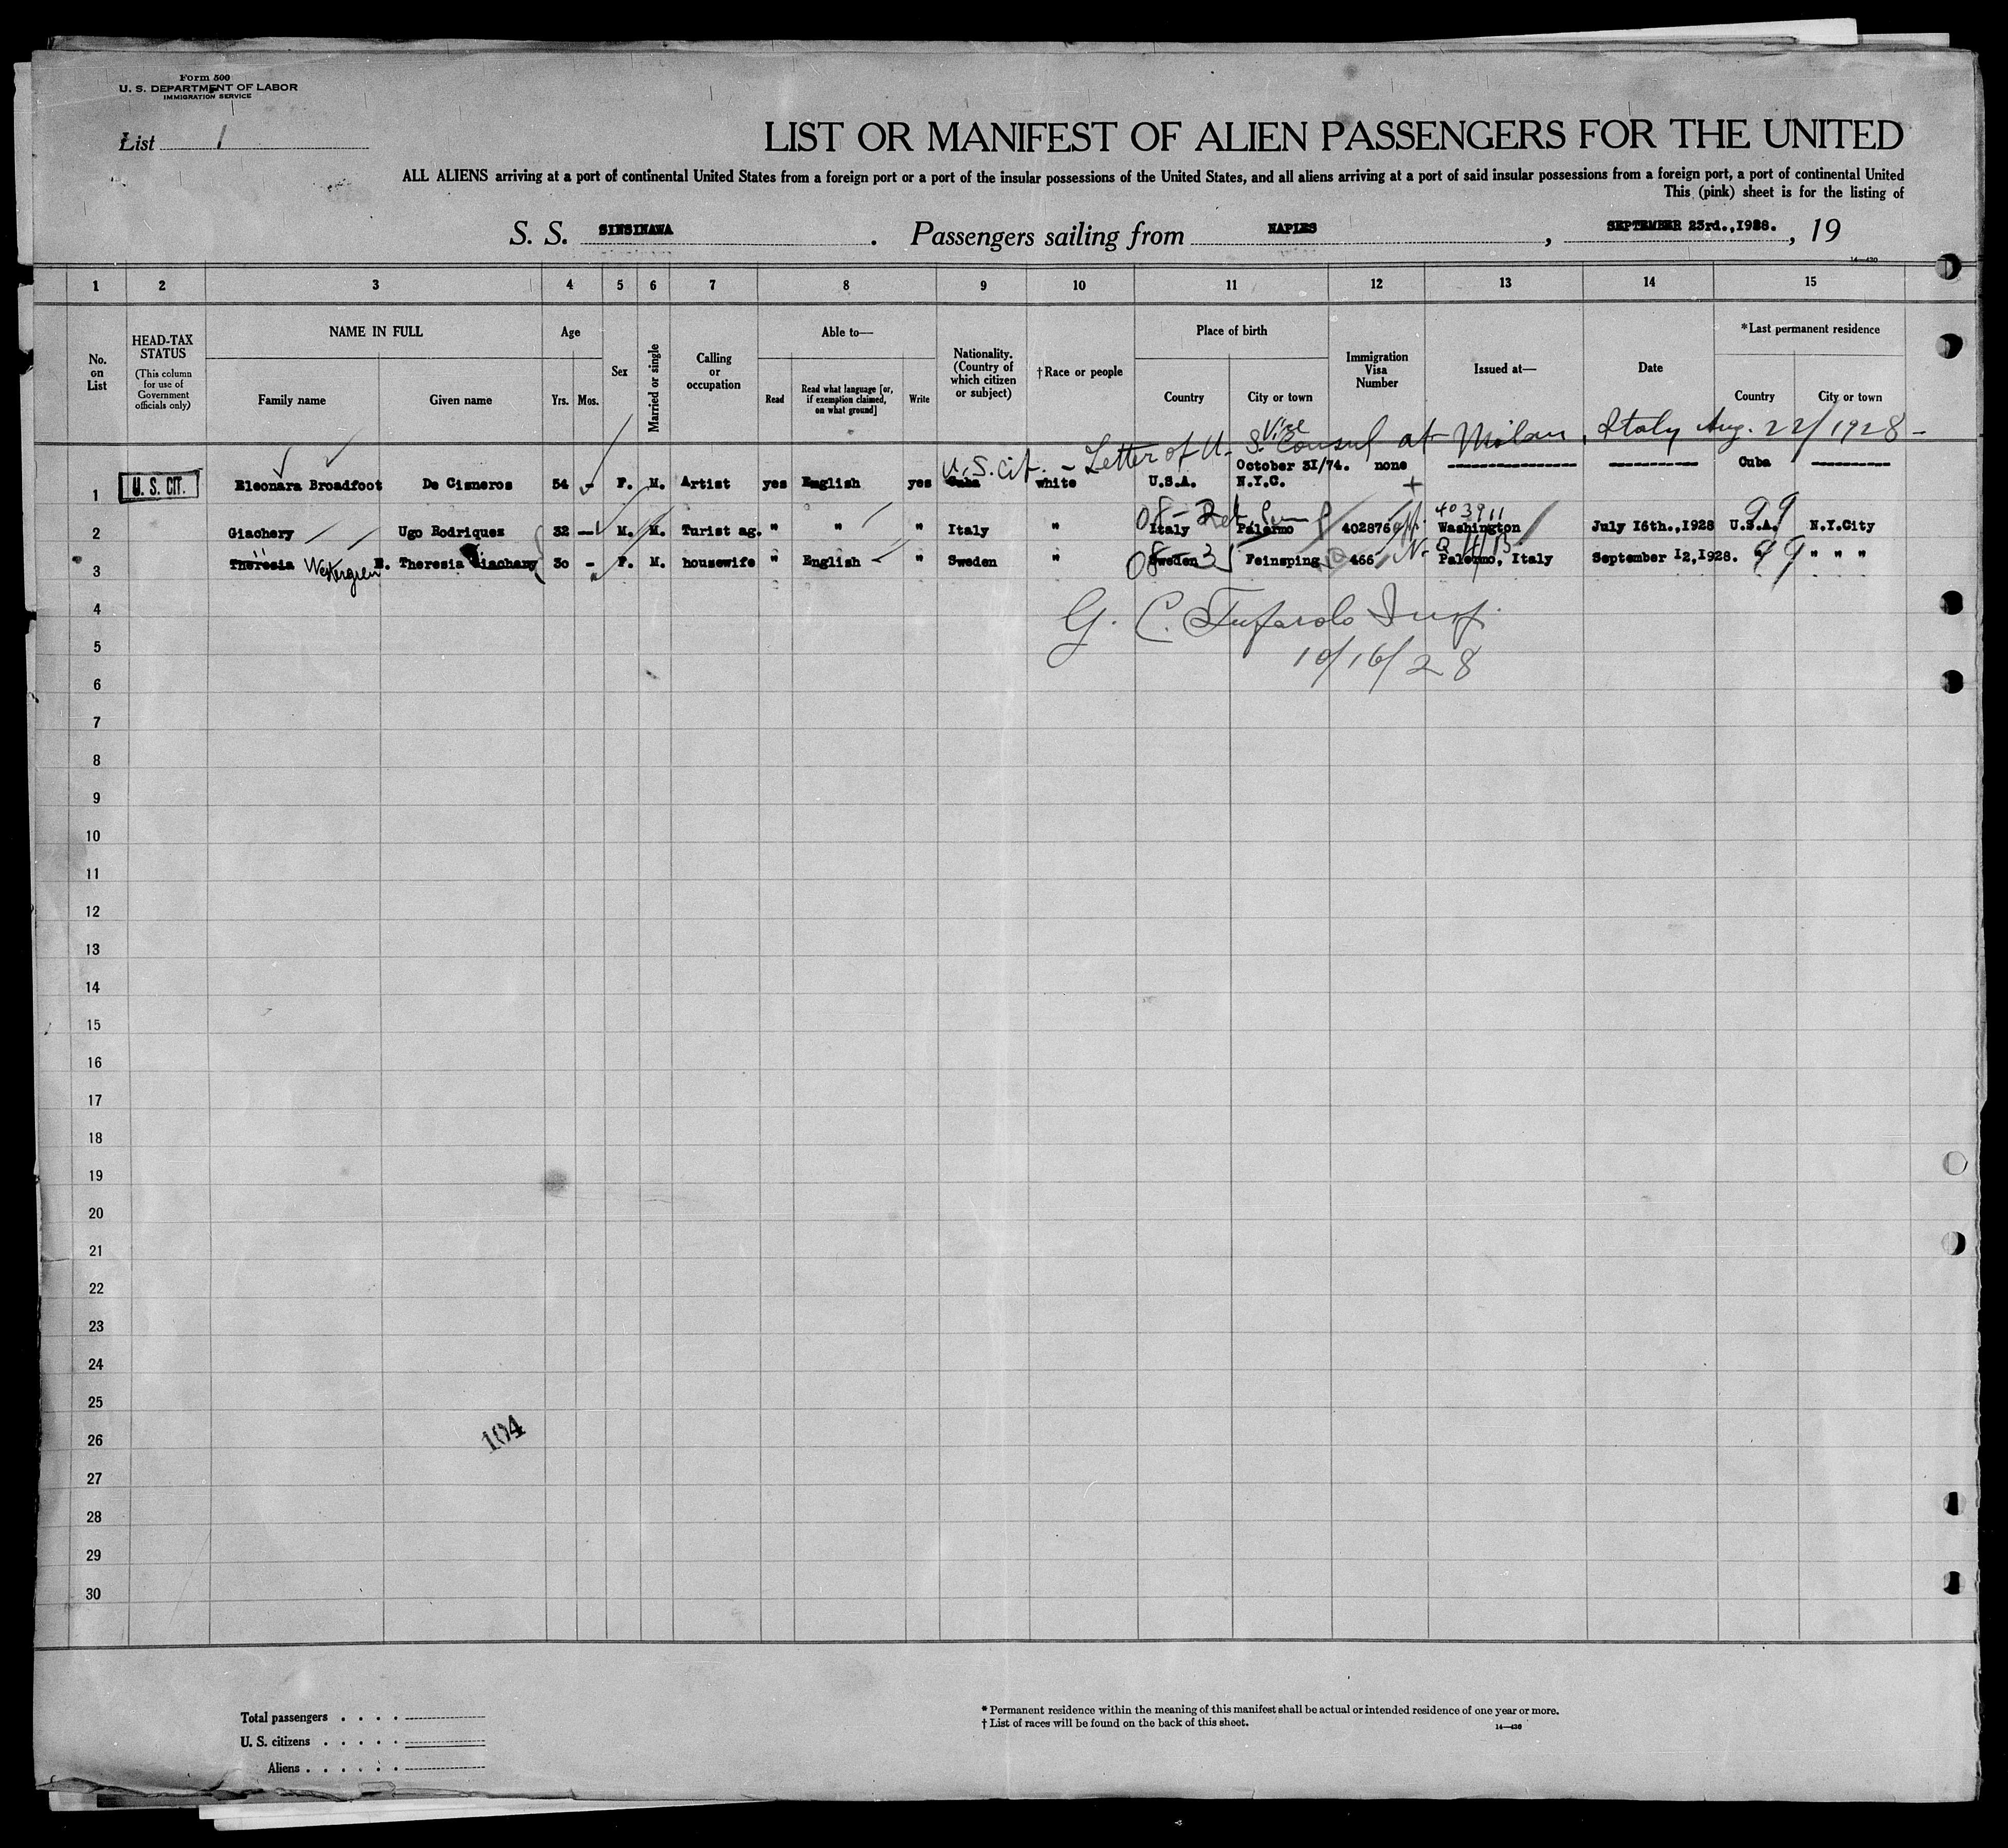 Form 500
U. S. DEPARTMENT OF LABOR
IMMIGRATION SERVICE
List 1
LIST OR MANIFEST OF ALIEN PASSENGERS FOR THE UNITED
ALL ALIENS arriving at a port of continental United States from a foreign port or a port of the insular possessions of the United States, and all aliens arriving at a port of said insular possessions from a foreign port, a port of continental United
This (pink) sheet is for the listing of
S. S. SINSINAWA. Passengers sailing from NAPLES, SEPTEMBER 23rd.,1928., 19
14—430
1 2 3 4 5 6 7 8 9 10 11 12 13 14 15
No. on List
HEAD-TAX STATUS
(This column for use of Government officials only)
NAME IN FULL
Family name Given name
Age
Yrs. Mos.
Sex
Married or single
Calling or occupation
Able to—
Read
Read what language [or, if exemption claimed, on what ground]
Write
Nationality. (Country of which citizen or subject)
†Race or people
Place of birth
Country City or town
Immigration Visa Number
Issued at—
Date
*Last permanent residence
Country City or town
U.S. cit. - Letter of U. S. Vice Consul at Milan, Italy Aug. 22/1928 -
October 31/74. none Cuba
1 U. S. CIT. Eleonara Broadfoot De Cisneros 54 - F. M. Artist yes English yes Cuba white U.S.A. N.Y.C.
403911
99
2 Giachery Ugo Rodriquez 32 - M. M. Turist ag. " " " Italy " Italy Palermo 402876 Washington July 16th.,1928 U.S.A. N.Y.City
3 Theresia Westergren E. Theresia Giachery 30 - F. M. housewife " English " Sweden " Sweden Feinsping 466 Palermo, Italy September 12,1928. " " " "
99
4
G. C. Tufarolo Insp.
5
10/16/28
6
7
8
9
10
11
12
13
14
15
16
17
18
19
20
21
22
23
24
25
104
26
27
28
29
30
Total passengers . . . .
U. S. citizens . . . . .
Aliens . . . . . .
* Permanent residence within the meaning of this manifest shall be actual or intended residence of one year or more.
† List of races will be found on the back of this sheet.
14—430